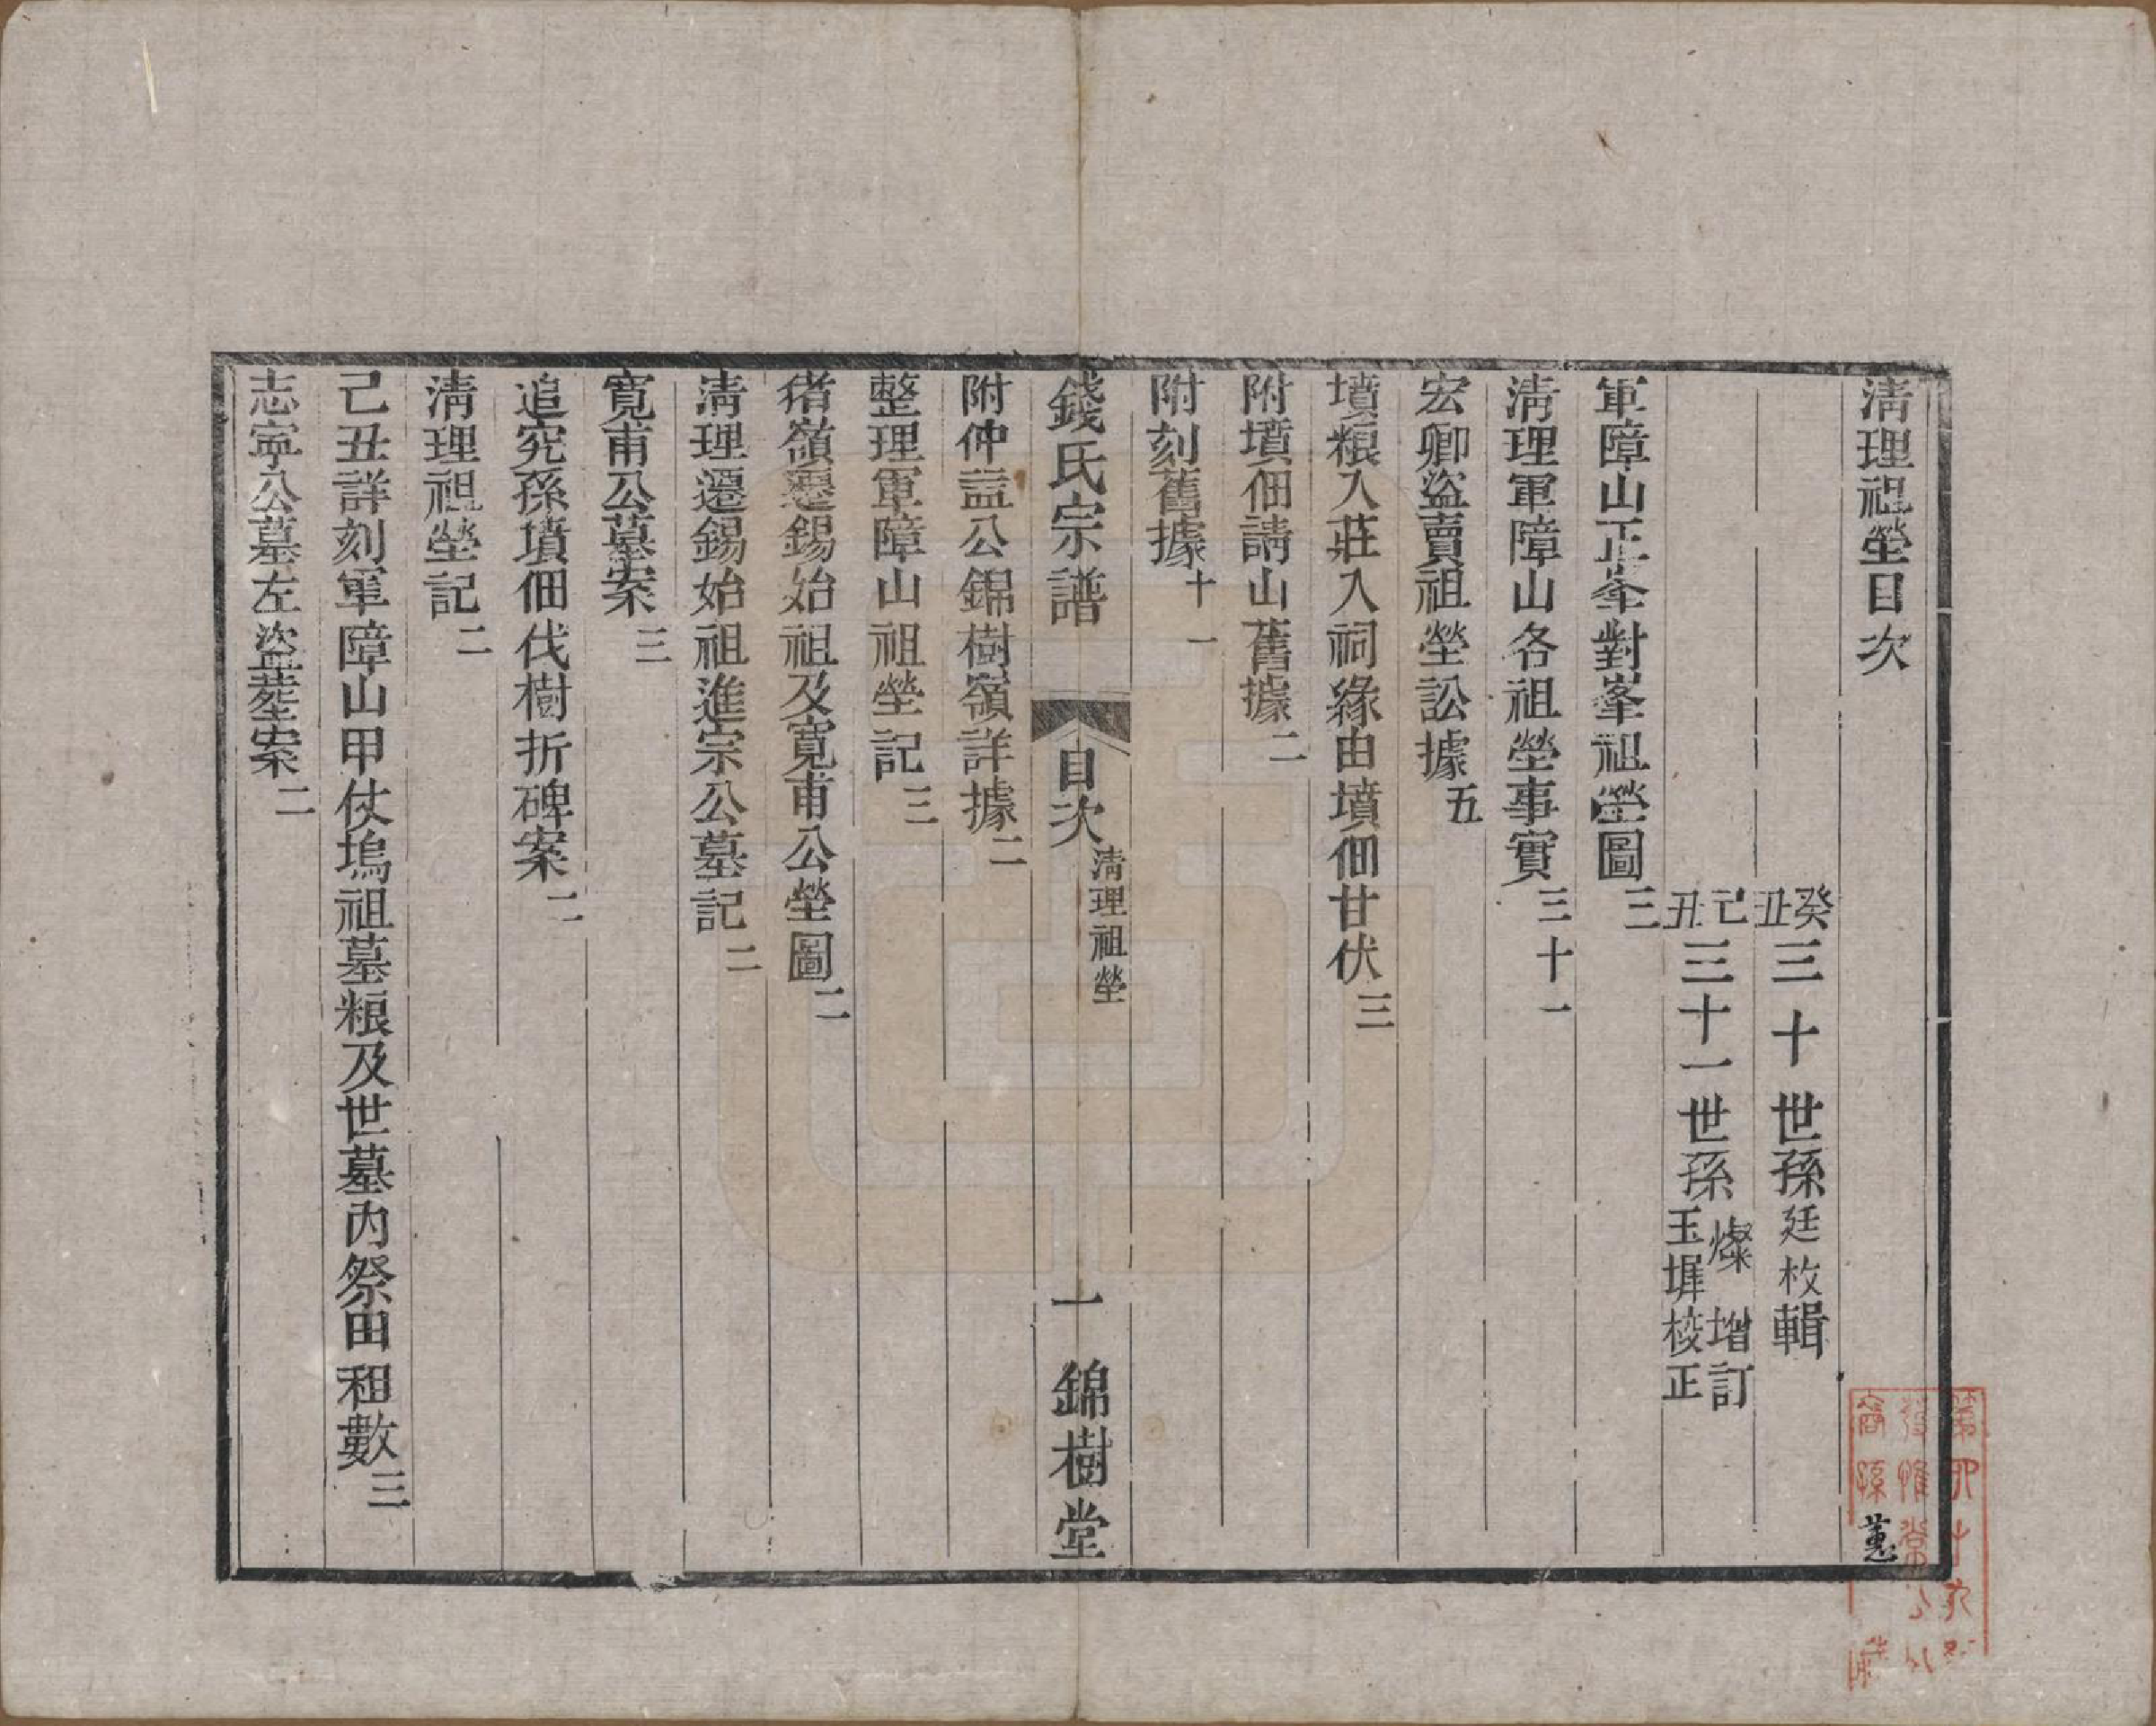 清理祖塋目次
癸丑三十世孫廷枚輯
己丑三十一世孫燦增訂
玉墀校正
軍障山正峯對峯祖塋圖三
清理軍障山各祖塋事實三十一
宏卿盜賣祖塋訟據五
墳粮入莊入祠緣由墳佃甘伏三
附墳佃請山舊據二
附刻舊據十一
錢氏宗譜
目次 清理祖塋
一 錦樹堂
附仲謚公錦樹嶺詳據二
整理軍障山祖塋記三
猪嶺遷錫始祖及寬甫公塋圖二
清理遷錫始祖進宗公墓記二
寬甫公墓案三
追究孫墳佃伐樹折碑案二
清理祖塋記二
己丑詳刻軍障山甲仗塢祖墓粮及世墓內祭田租數三
志寧公墓左盜塟案二